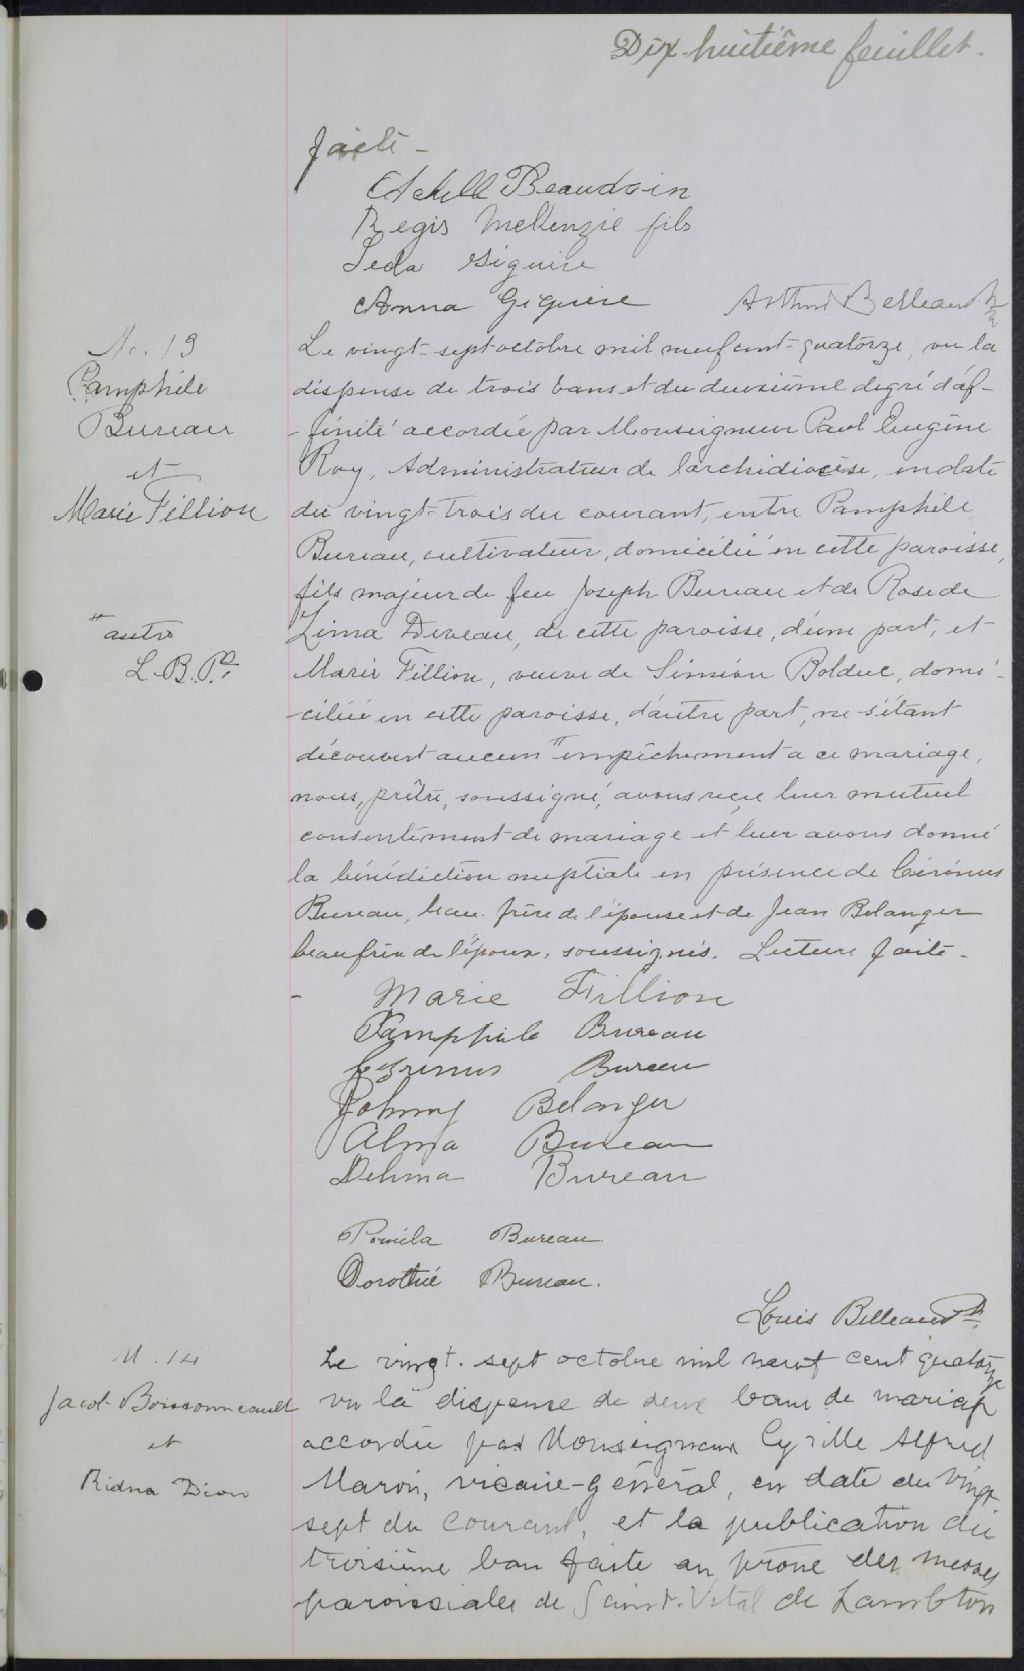 Dix-huitième feuillet.
faite -
Achille Beaudoin
Regis McKenzie fils
Leda Giguire
Anna Giguere Arthur Belleau Ptre
No. 13
Pamphile
Bureau
et
Marie Fillion
Le vingt-sept octobre mil neuf cent-quatorze, vu la
dispense de trois bans et du deuxième degré d'af-
-finité accordée par Monseigneur Paul Eugène
Roy, Administrateur de l'archidiocèse, en date
du vingt-trois du courant, entre Pamphile
Bureau, cultivateur, domicilié en cette paroisse,
fils majeur de feu Joseph Bureau et de Rose de
Lima Deveau, de cette paroisse, d'une part, et
Marie Fillion, veuve de Siméon Bolduc, domi-
-ciliée en cette paroisse, d'autre part, ne s'étant
découvert aucun " empêchement a ce mariage,
" autre
L.B. Ptre
nous, prêtre, soussigné, avons reçu leur mutuel
consentement de mariage et leur avons donné
la bénédiction nuptiale en présence de Gérémus
Bureau, beau-frère de l'épouse et de Jean Belanger
beau frère de l'époux, soussignés. Lecture faite -
- Marie Fillion
Pamphile Bureau
Bureau
Johnny Belanger
Alma Bureau
Delima Bureau
Pomila Bureau
Dorothé Bureau.
Louis Belleau Ptre
M. 14
Jacob Boissonneault
et
Ridna Dion
Le vingt-sept octobre mil neuf cent quatorze
vu la dispense de deux bans de mariage
accordée par Monseigneur Cyrille Alfred
Marois, vicaire-général, en date du vingt
sept du courant, et la publication du
troisième ban faite au prône des messes
paroissiales de Saint-Vital de Lambton